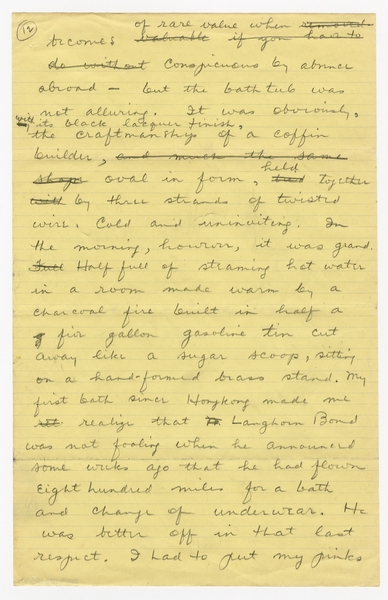 12
of rare value when removed
becomes valuable if you have to
do without conspicuous by absence
abroad — but the bathtub was
not alluring. It was obviously,
with its black lacquer finish,
the craftmanship of a coffin
builder, and much the same
shape oval in form, held tied together
with by three strands of twisted
wire. Cold and uninviting. In
the morning, however, it was grand.
Full Half full of steaming hot water
in a room made warm by a
charcoal fire built in half a
five gallon gasoline tin cut
away like a sugar scoop, sitting
on a hand-formed brass stand. My
first bath since Hongkong made me
realize that Langhorn Bond
was not fooling when he announced
some weeks ago that he had flown
eight hundred miles for a bath
and change of underwear. He
was better off in that last
respect. I had to put my pinks